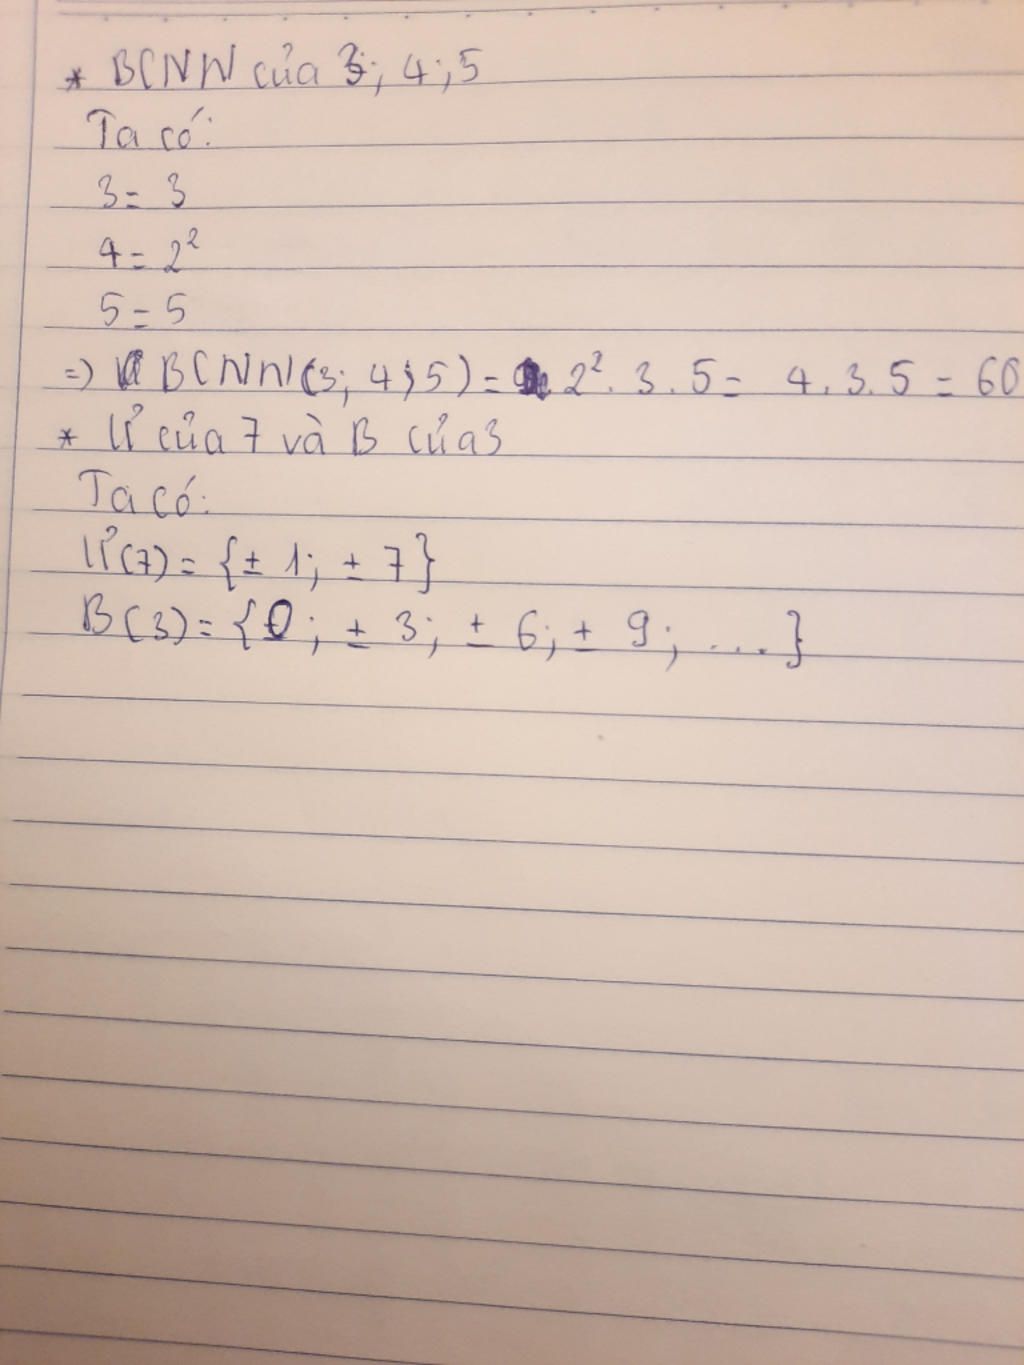 * BCNN của 3; 4; 5
Ta có:
3 = 3
4 = 2²
5 = 5
=) BCNN(3; 4; 5) = 2² . 3 . 5 = 4 . 3 . 5 = 60
* Ư của 7 và B của 3
Ta có:
Ư(7) = {± 1; ± 7}
B(3) = {0; ± 3; ± 6; ± 9; ...}